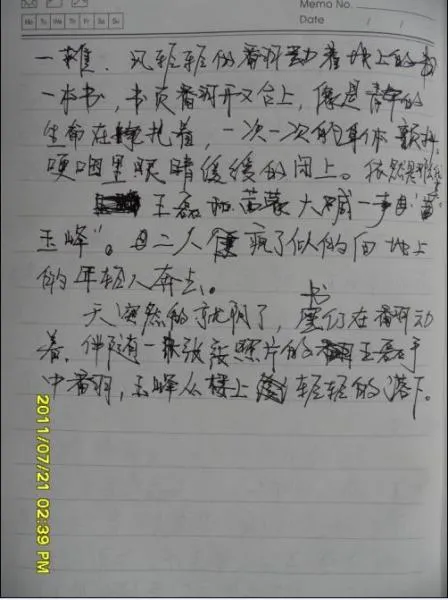 Memo No.
Date / /
Mo Tu We Th Fr Sa Su
一难。风轻轻的翻动着地上的书
一本书，书页翻开又合上，像是青年的
生命在挣扎着，一次一次的身体颤抖，
哽咽里眼睛缓缓的闭上。依然是
王磊和苗蒙大喊一声：“苗
玉峰”。二人疯了似的向地上
的年轻人奔去。
天突然的就阴了，书们在翻动
着，伴随一张张照片的王磊手
中翻开，玉峰从楼上轻轻的落下。
2011/07/21 02:39 PM